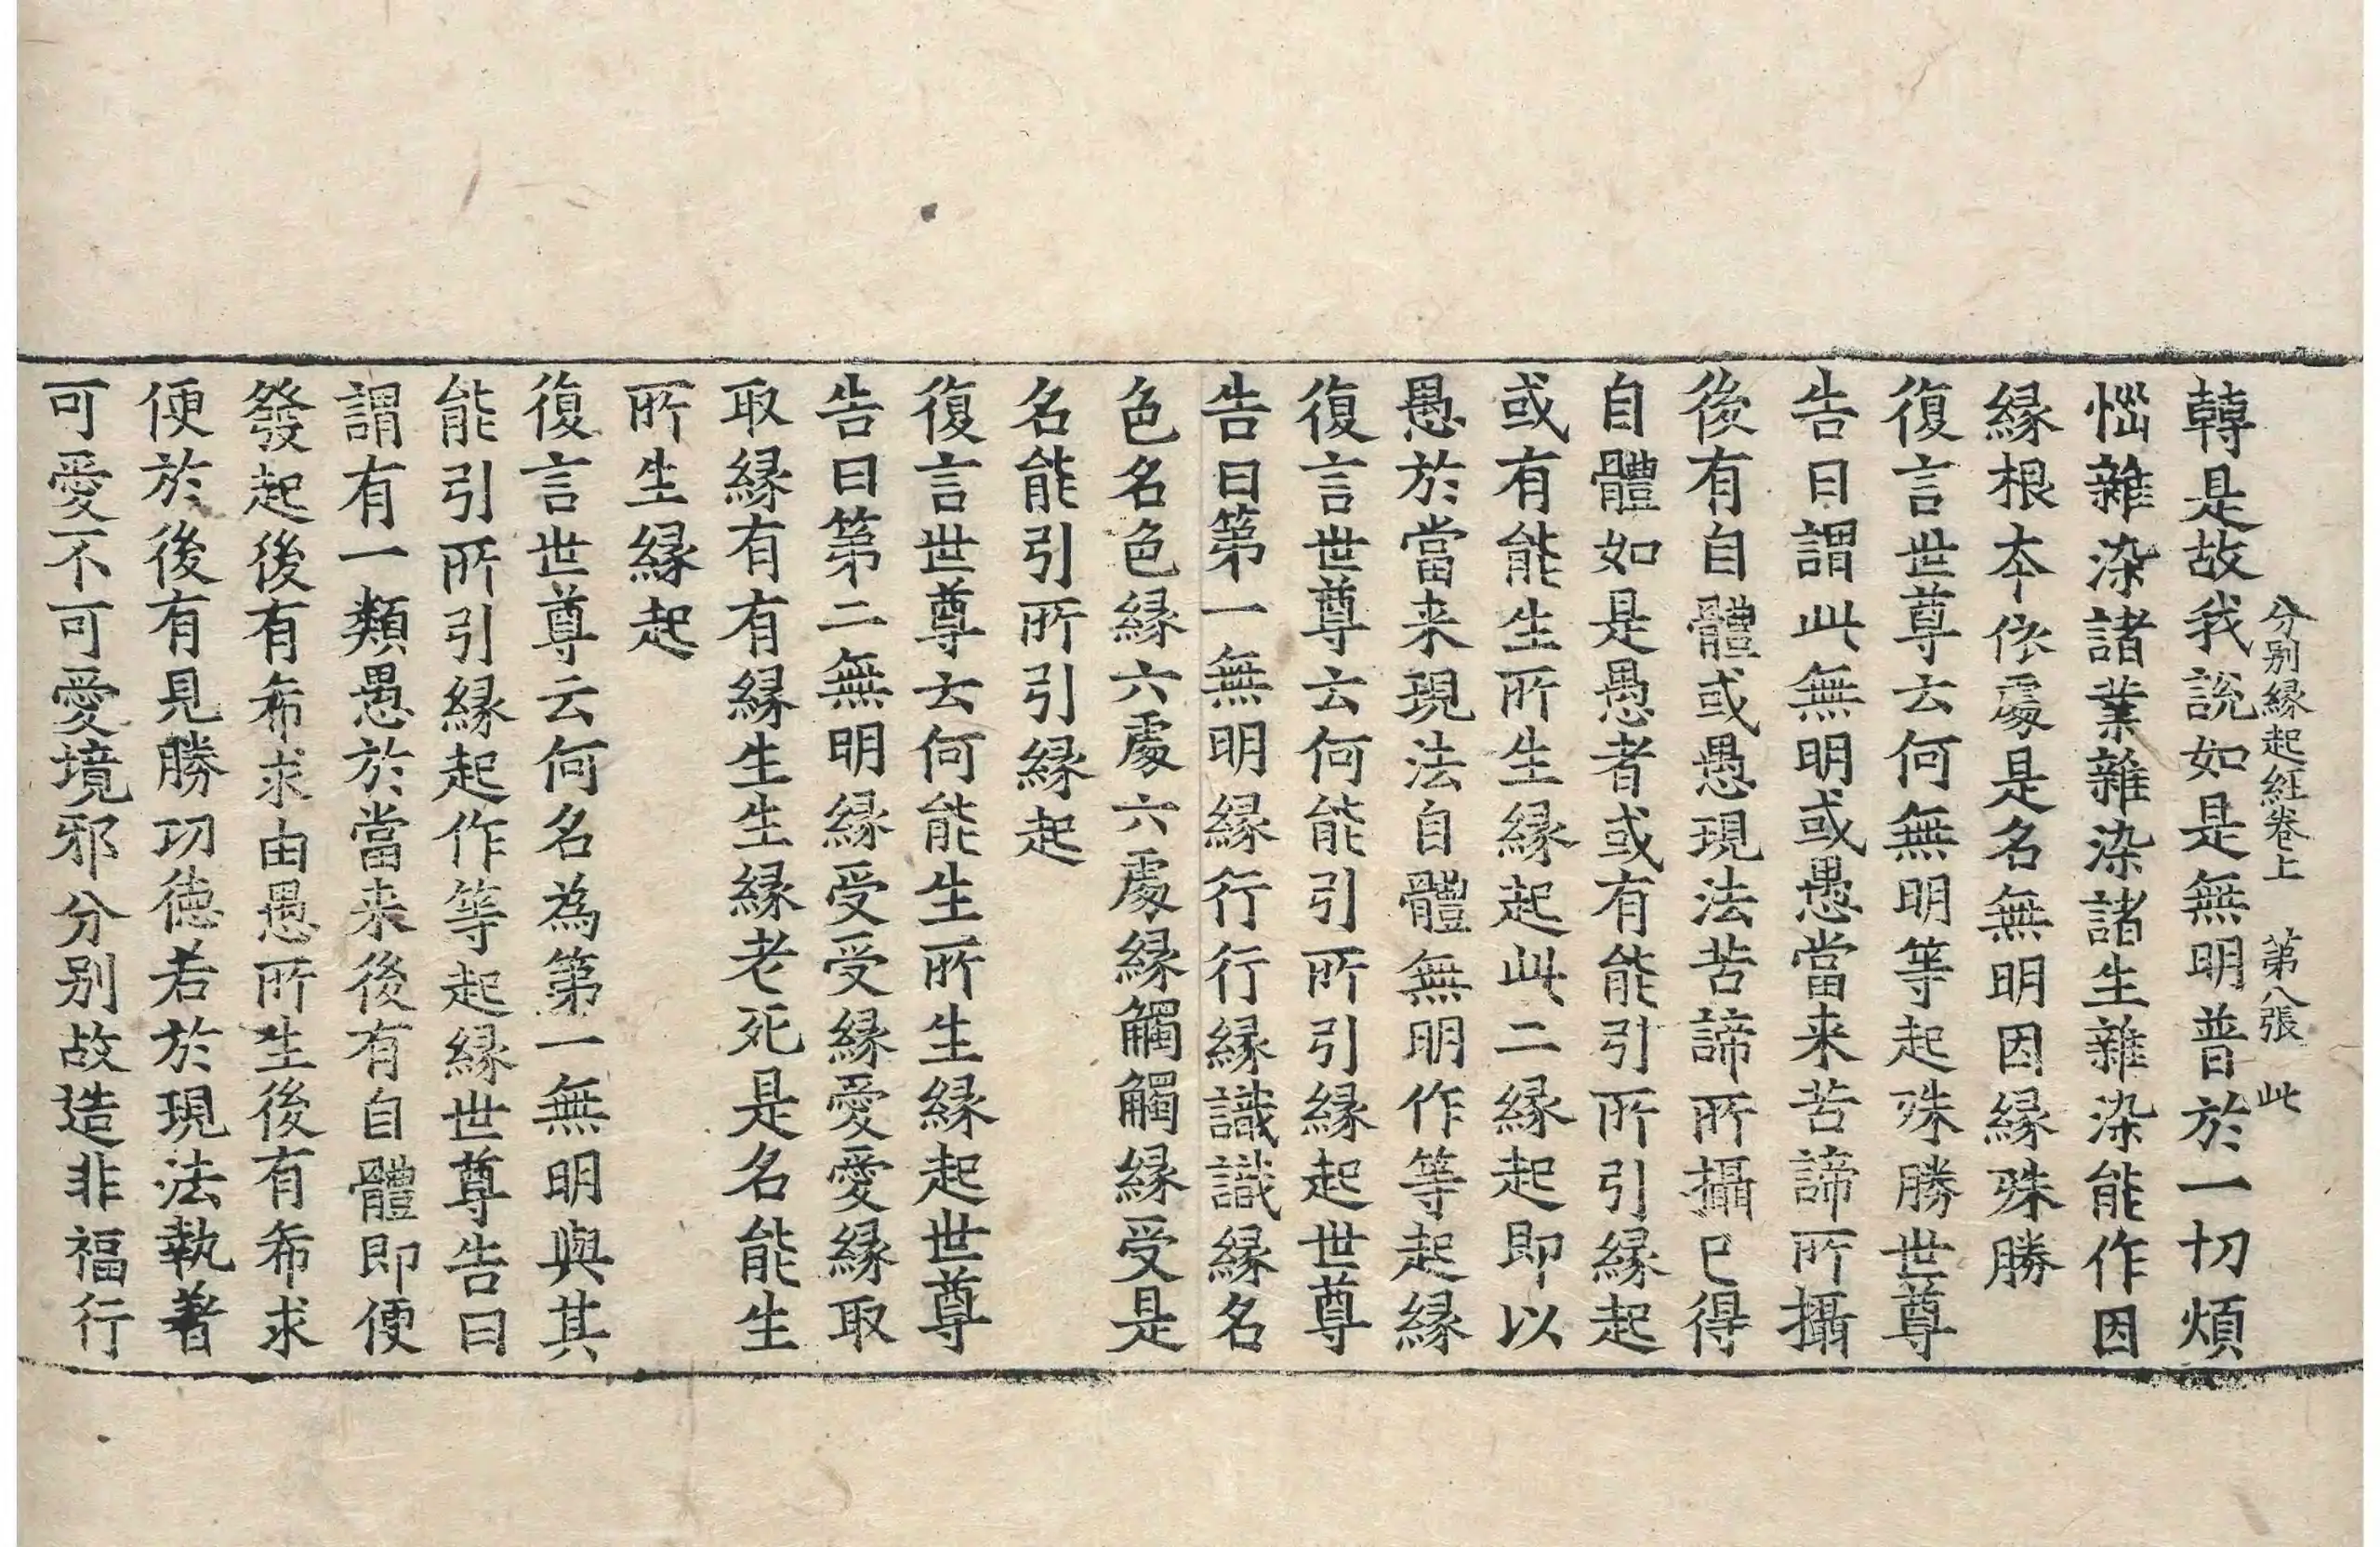 分别縁起経卷上　第八張　此
轉是故我說如是無明普於一切煩
惱雜染諸業雜染諸生雜染能作因
縁根本依處是名無明因縁殊勝
復言世尊云何無明等起殊勝世尊
告曰謂此無明或愚當来苦諦所攝
後有自體或愚現法苦諦所攝已得
自體如是愚者或有能引所引縁起
或有能生所生縁起此二縁起即以
愚於當来現法自體無明作等起縁
復言世尊云何能引所引縁起世尊
告曰第一無明縁行行縁識識縁名
色名色縁六處六處縁觸觸縁受是
名能引所引縁起
復言世尊云何能生所生縁起世尊
告曰第二無明縁受受縁愛愛縁取
取縁有有縁生生縁老死是名能生
所生縁起
復言世尊云何名為第一無明與其
能引所引縁起作等起縁世尊告曰
謂有一類愚於當来後有自體即便
發起後有希求由愚所生後有希求
便於後有見勝功德若於現法執著
可愛不可愛境邪分别故造非福行